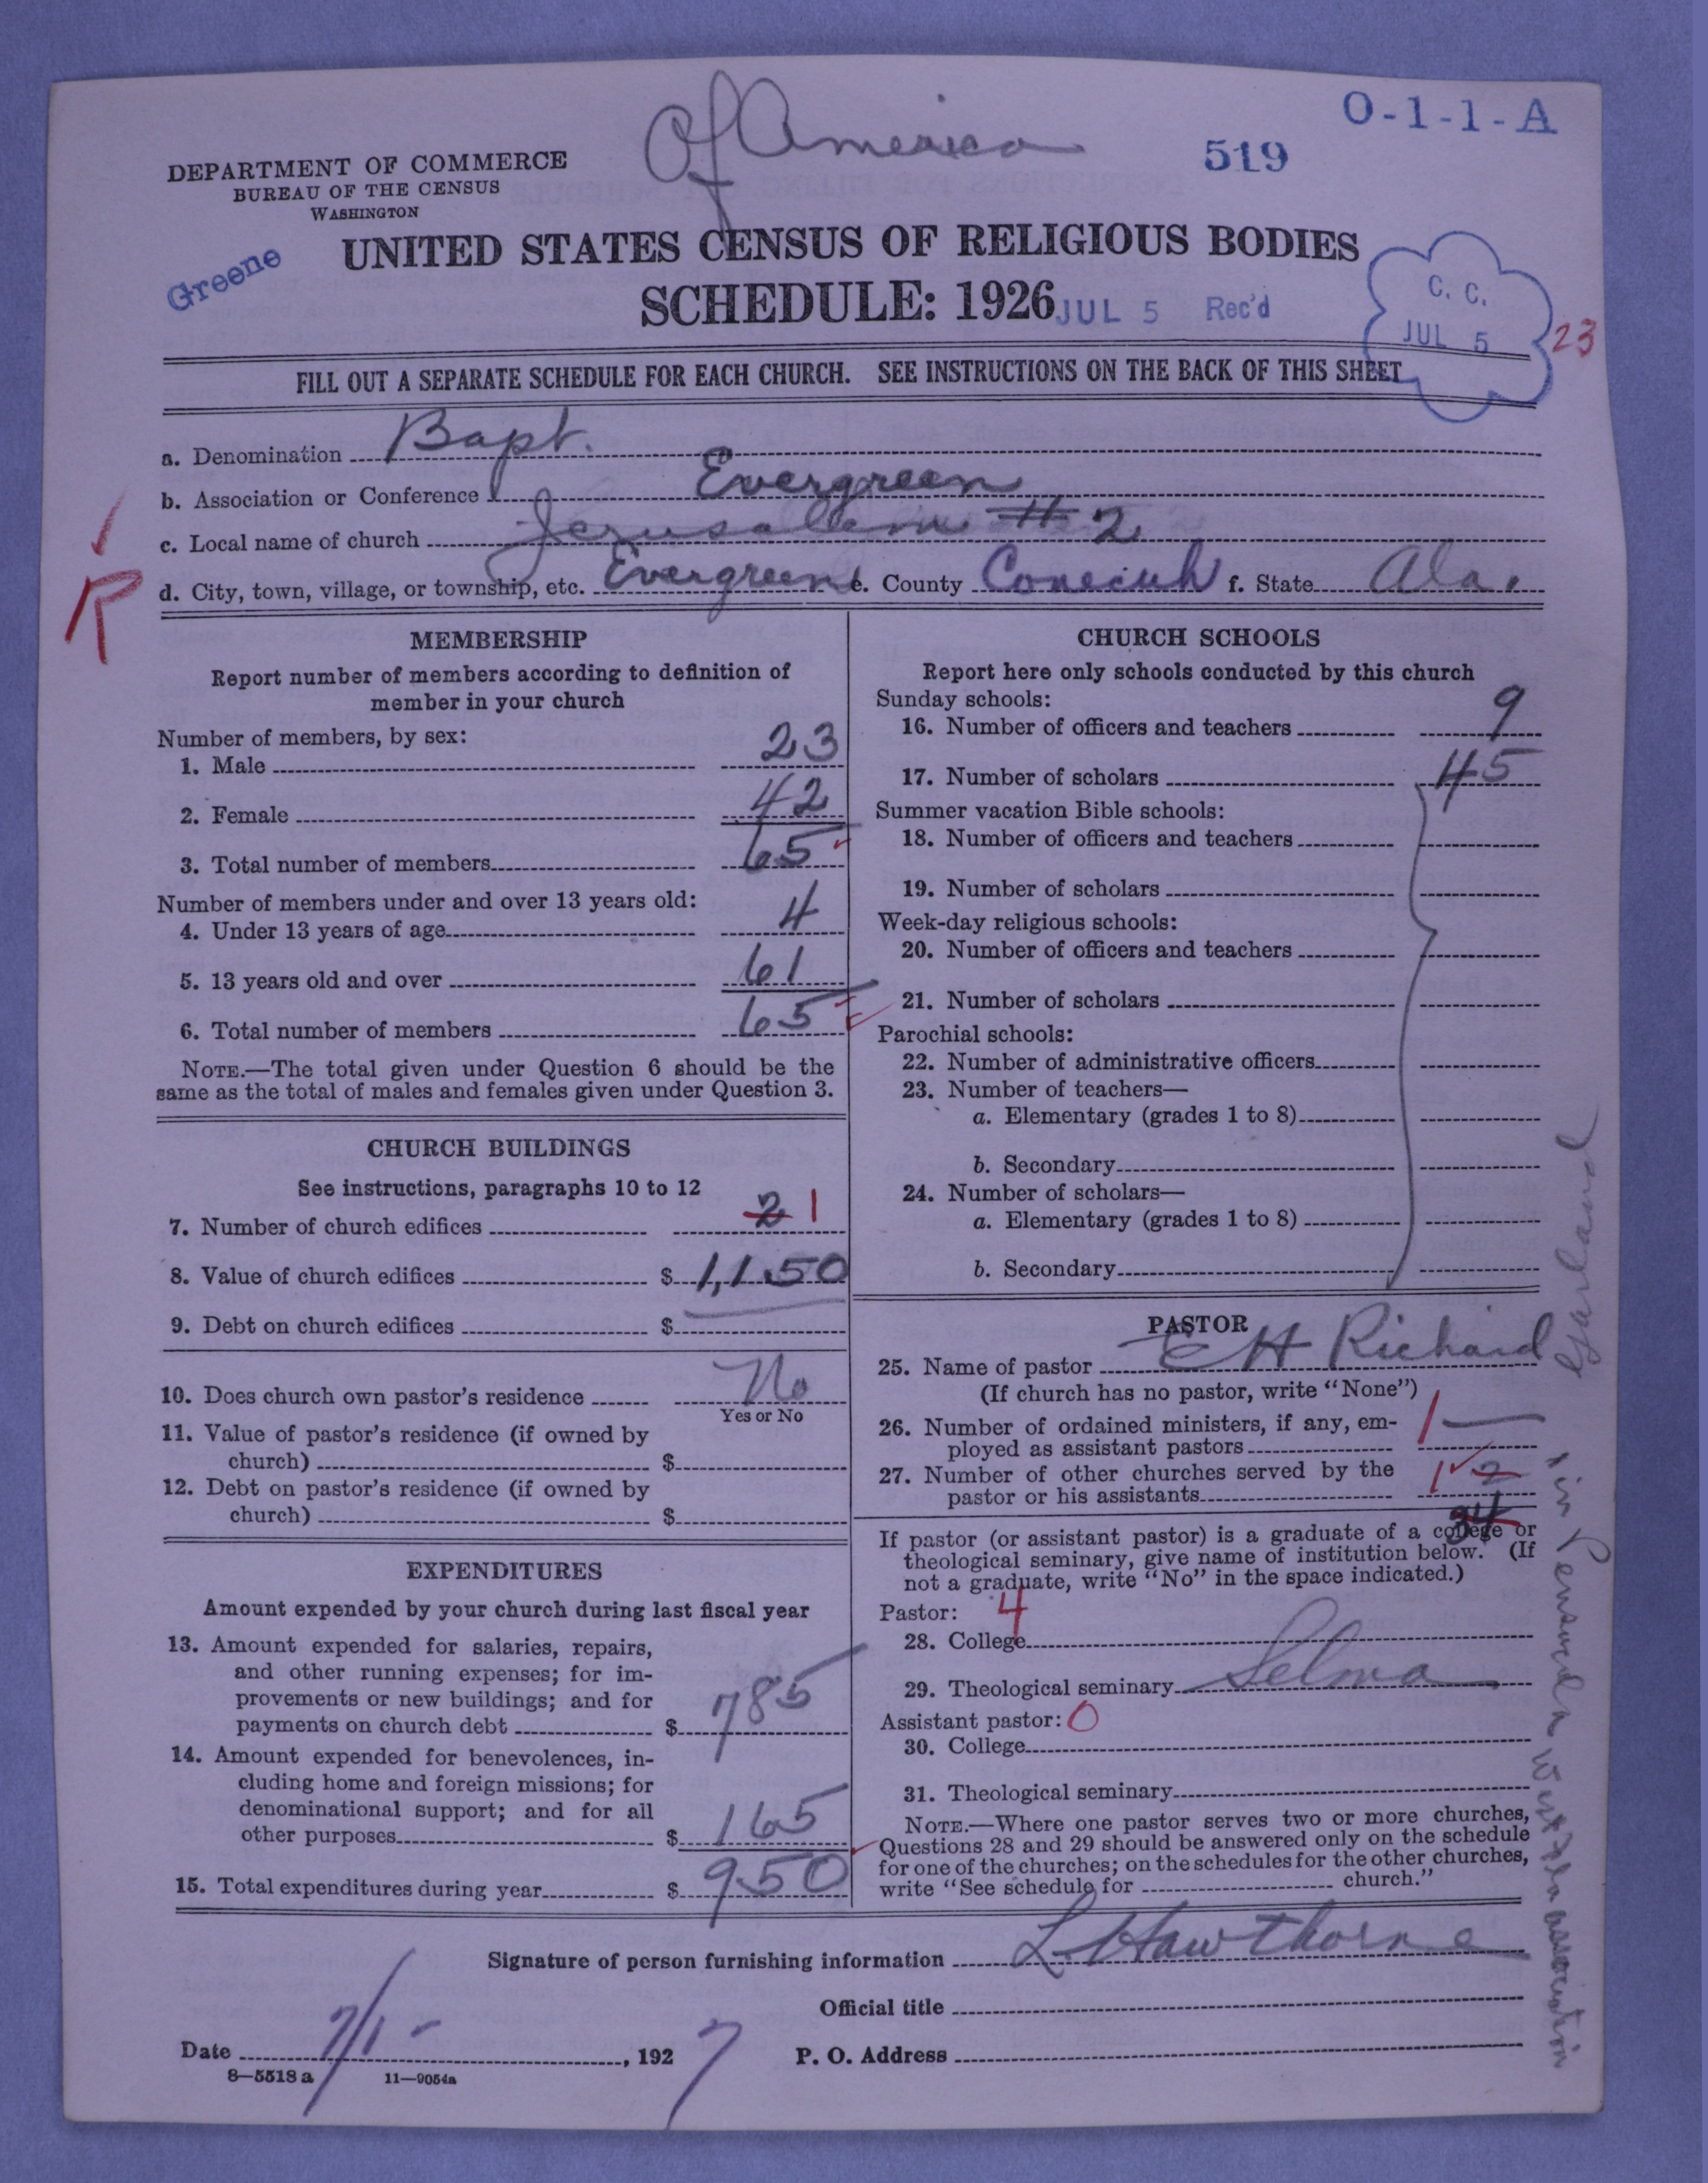 O-1-1-A
Of America
519
DEPARTMENT OF COMMERCE
BUREAU OF THE CENSUS
WASHINGTON
Greene
UNITED STATES CENSUS OF RELIGIOUS BODIES
SCHEDULE: 1926
JUL 5 Rec'd
C. C.
JUL 5
23
FILL OUT A SEPARATE SCHEDULE FOR EACH CHURCH. SEE INSTRUCTIONS ON THE BACK OF THIS SHEET
a. Denomination Bapt.
b. Association or Conference Evergreen
c. Local name of church Jerusalem # 2
d. City, town, village, or township, etc. Evergreen e. County Conecuh f. State Ala.
R
MEMBERSHIP
Report number of members according to definition of
member in your church
Number of members, by sex:
1. Male 23
2. Female 42
3. Total number of members 65
Number of members under and over 13 years old:
4. Under 13 years of age 4
5. 13 years old and over 61
6. Total number of members 65
NOTE.—The total given under Question 6 should be the
same as the total of males and females given under Question 3.
CHURCH BUILDINGS
See instructions, paragraphs 10 to 12
7. Number of church edifices 2 1
8. Value of church edifices $ 1,150
9. Debt on church edifices $
10. Does church own pastor's residence No
Yes or No
11. Value of pastor's residence (if owned by
church) $
12. Debt on pastor's residence (if owned by
church) $
EXPENDITURES
Amount expended by your church during last fiscal year
13. Amount expended for salaries, repairs,
and other running expenses; for im-
provements or new buildings; and for
payments on church debt $ 785
14. Amount expended for benevolences, in-
cluding home and foreign missions; for
denominational support; and for all
other purposes $ 165
15. Total expenditures during year $ 950
CHURCH SCHOOLS
Report here only schools conducted by this church
Sunday schools:
16. Number of officers and teachers 9
17. Number of scholars 45
Summer vacation Bible schools:
18. Number of officers and teachers
19. Number of scholars
Week-day religious schools:
20. Number of officers and teachers
21. Number of scholars
Parochial schools:
22. Number of administrative officers
23. Number of teachers—
a. Elementary (grades 1 to 8)
b. Secondary
24. Number of scholars—
a. Elementary (grades 1 to 8)
b. Secondary
PASTOR
25. Name of pastor E H Richard
(If church has no pastor, write "None")
26. Number of ordained ministers, if any, em-
ployed as assistant pastors 1
27. Number of other churches served by the
pastor or his assistants 1 2
34
If pastor (or assistant pastor) is a graduate of a college or
theological seminary, give name of institution below. (If
not a graduate, write "No" in the space indicated.)
Pastor: 4
28. College
29. Theological seminary Selma
Assistant pastor: 0
30. College
31. Theological seminary
NOTE.—Where one pastor serves two or more churches,
Questions 28 and 29 should be answered only on the schedule
for one of the churches; on the schedules for the other churches,
write "See schedule for church."
Garland
1 in Pensacola West Fla association
Signature of person furnishing information L Hawthorne
Official title
Date 7/1- , 1927 P. O. Address
8—5518 a 11—9054a